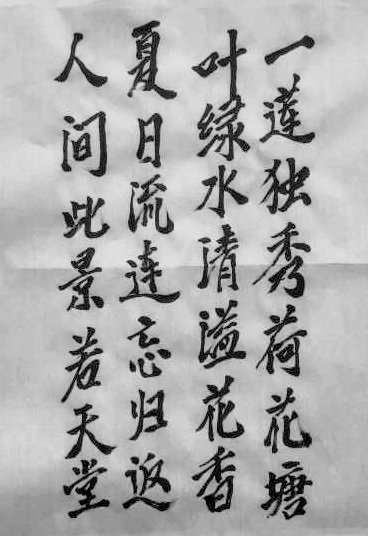 一莲独秀荷花塘
叶绿水清溢花香
夏日流连忘归返
人间此景若天堂